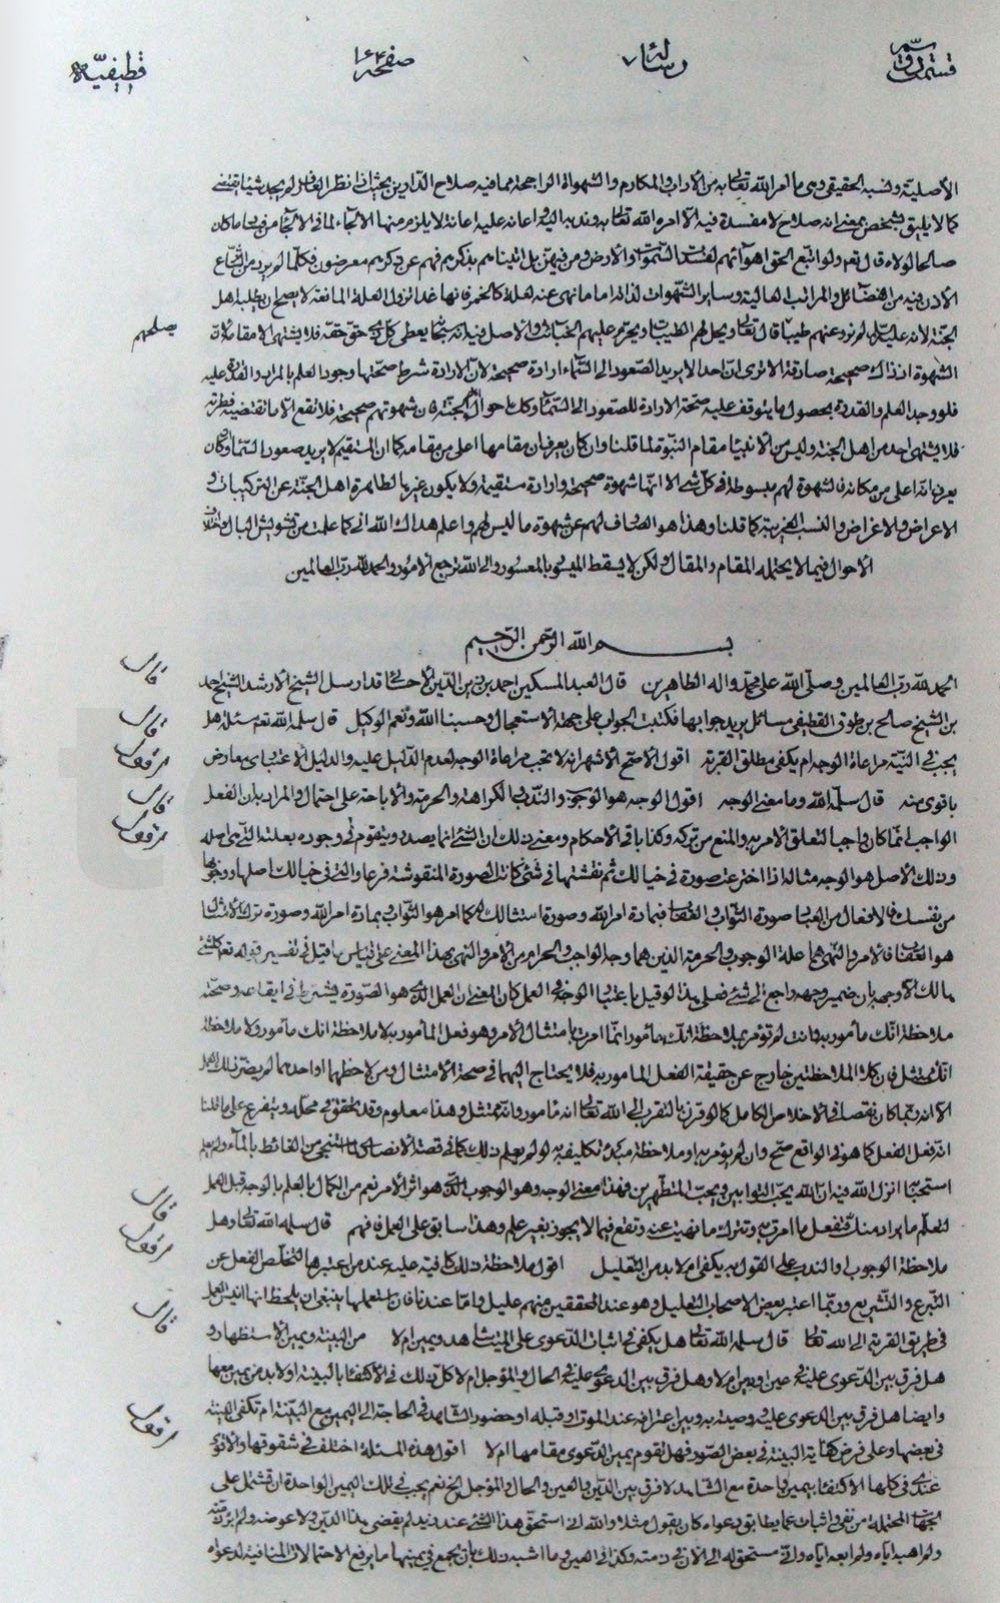 قسمت دوم رسالة صفحه ١٦٤ قطيفيّة
الأصلية ونسبه الحقيقي وهى ما أمر الله تعالى به من الآداب والمكارم والشهوات الراجحة مما فيه صلاح الدارين بحيث اذا نظر العاقل لم يجد شيئا يقتضى
كمالا يليق بشخص بمعنى انه صلاح لا مفسدة فيه الا امره الله تعالى به وندبه اليه واعانه عليه اعانة لا يلزم منها الالجاء لما فى الالجاء من
صالحا لولاه قال تعالى ولو اتبع الحق اهوائهم لفسدت السموات والارض ومن فيهن بل اتيناهم بذكرهم فهم عن ذكرهم معرضون فكلما لم يرد من الشارع
الاذن فيه من الفضائل والمراتب العالية وساير الشهوات لذاته اما ما نهى عنه لعلة كالخمر فانها غدا تزول العلة المانعة لا يصح ان يطلبه اهل
الجنة لانه قال تعالى ويحل لهم الطيبات ويحرم عليهم الخبائث والاصل فيه انه سبحانه يعطى كل ذى حق حقه فلا يشتهى الا مقامه لان
الشهوة اذ ذاك صحيحة صادقة الا ترى ان احدا لا يريد الصعود الى السماء ارادة صحيحة لان الارادة شرط صحتها وجود العلم بالمراد والقدرة عليه
فلو وجد العلم والقدرة بحصول ما يتوقف عليه صحة الارادة للصعود الى السماء وكل احوال اهل الجنة لان شهوتهم صحيحة فلا تقع الا ما تقتضيه فطرته
فلا يشتهى احد من اهل الجنة وليس من الانبياء مقام النبوة لما قلنا وان كان يعرف ان مقامها اعلى من مقامه كما ان المستقيم لا يريد صعود السماء وان كان
يعرف انه اعلى من مكانه فالشهوة لهم مبسوطة فى كل شئ الا انها شهوة صحيحة وارادة مستقيمة ولا يكون غيرها لطهارة اهل الجنة عن التركيبات و
الاعراض والاغراض والنسب الغريبة كما قلنا وهذا هو الصارف لهم عن شهوة ما ليس لهم واعلم هداك الله انى كما علمت من تشويش البال
الاحوال فيما لا يحتمله المقام والمقال ولكن لا يسقط الميسور بالمعسور والى الله ترجع الامور والحمد لله رب العالمين
بسم الله الرحمن الرحيم
الحمد لله رب العالمين وصلى الله على محمد واله الطاهرين قال العبد المسكين احمد بن زين الدين الاحسائى قد ارسل الشيخ الارشد الشيخ احمد
بن الشيخ صالح بن طوق القطيفى مسائل يريد جوابها فكتبت الجواب على جهة الاستعجال وحسبنا الله ونعم الوكيل قال سلمه الله تعالى مسئلة هل
يجب فى النية مراعاة الوجه ام يكفى مطلق القربة اقول الاصح الاشهر انه لا تجب مراعاة الوجه لعدم الدليل عليه والدليل الاعتبارى معارض
باقوى منه قال سلمه الله وما معنى الوجه اقول الوجه هو الوجوب والندب والكراهة والحرمة والاباحة على احتمال والمراد به ان الفعل
الواجب انما كان واجبا لتعلق الامر به والمنع من تركه وكذا باقى الاحكام ومعنى ذلك ان الشئ انما يصدر ويتقوم فى وجوده بعلته التى هى اصله
وذلك الاصل هو الوجه مثاله اذا اخترعت صورة فى خيالك ثم نقشتها فى شئ كانت الصورة المنقوشة فرعا والتى فى خيالك اصلها ووجهها
من نفسك فالافعال من العباد صورة الثواب والعقاب فبمادة امر الله وصورة امتثالك كما امر هو الثواب وبمادة امر الله وصورة ترك الامتثال
هو العقاب فالامر والنهى هما علة الوجوب والحرمة الذين هما وجه الواجب والحرام من الامر والنهى بهذا المعنى على قياس ما قيل فى تفسير قوله تعالى كل شئ
هالك الا وجهه بان ضمير وجهه راجع الى شئ فعلى هذا لو قيل باعتبار الوجه فى العمل كان المعنى ان العمل الذى هو الصورة يشترط فى ايقاعه وصحته
ملاحظة انك مأمور به وانت لم تؤمر بملاحظة انك مأمور انما امرت بامتثال الامر وهو فعل المأمور به لا ملاحظة انك مأمور ولا ملاحظة
انك ممتثل فان كلا الملاحظتين خارج عن حقيقة الفعل المأمور به فلا يحتاج اليهما فى صحة الامتثال ومن لاحظهما او احدهما لم يضر ذلك العمل
الا انه ربما كان نقصا فى الاخلاص الكامل كما لو قرن بالتقرب الى الله تعالى انه مأمور وانه ممتثل وهذا معلوم وقد تحقق فى محله ويتفرع على ما قلنا
انه فعل الفعل كما هو فى الواقع صح وان لم يؤمر به او ملاحظة مبدء تكليفه به لو لم يعلم ذلك كما فى قصة الانصارى لما استنجى من الغائط بالماء ولم يعلم
استحبابها انزل الله فيه ان الله يحب التوابين ويحب المتطهرين فهذا معنى الوجه وهو الوجوب الذى هو اثر الامر نعم من الكمال العلم بالوجه قبل العمل
لتعلم ما يراد منك فتفعل ما امرت به وتترك ما نهيت عنه وتقع فيما لا يجوز بغير علم وهذا سابق على العمل فافهم قال سلمه الله تعالى وهل
ملاحظة الوجوب او الندب على القول به يكفى ام لا بد من التعليل اقول ملاحظة ذلك كافية عليه عند من اعتبرها لتخلص الفعل عن
التبرع والتشريع وربما اعتبر بعض الاصحاب التعليل وهو عند المحققين منهم عليل واما عندنا فان استعملها ينبغى ان يلحظ انها انيس العمل
فى طريق القربة الى الله تعالى قال سلمه الله تعالى هل يكفى فى اثبات الدعوى على الميت شاهد ويمين ام لا من البينة ويمين الاستظهار و
هل فرق بين الدعوى عليه فى عين او دين ام لا وهل فرق بين الدعوى عليه فى الحال والمؤجل ام لا كل ذلك فى الاكتفاء بالبينة او لا بد من يمين معها
وايضا هل فرق بين الدعوى عليه وصيته به وبين اعترافه عند الموت او قبله او حضور الشاهد فى الحاجة الى اليمين مع البينة ام تكفى البينة
فى بعضها وعلى فرض كفاية البينة فى بعض الصور فهل تقوم يمين الدعوى مقامها ام لا اقول هذه المسئلة اختلف فى شقوقها والاقوى
عندى فى كلها الاكتفاء بيمين واحدة مع الشاهد لا فرق بين الدين والعين والحال والمؤجل الخ نعم يجب فى تلك اليمين الواحدة ان تشتمل على
الجهات المحتملة من نفى واثبات عما يطابق دعواه كان يقول مثلا والله انى استحق هذا الشئ عند زيد لم يقضى هذا الدين ولا عوضه ولم ابرئ ذمته
ولم اهبه اياه ولم ابعه اياه وانى مستحق له الى الان فى ذمته وكذا فى العين وما اشبه ذلك بان يجمع فى يمينها ما يرفع الاحتمالات المنافية لدعواه
قال
قال
اقول
قال
اقول
قال
اقول
قال
اقول